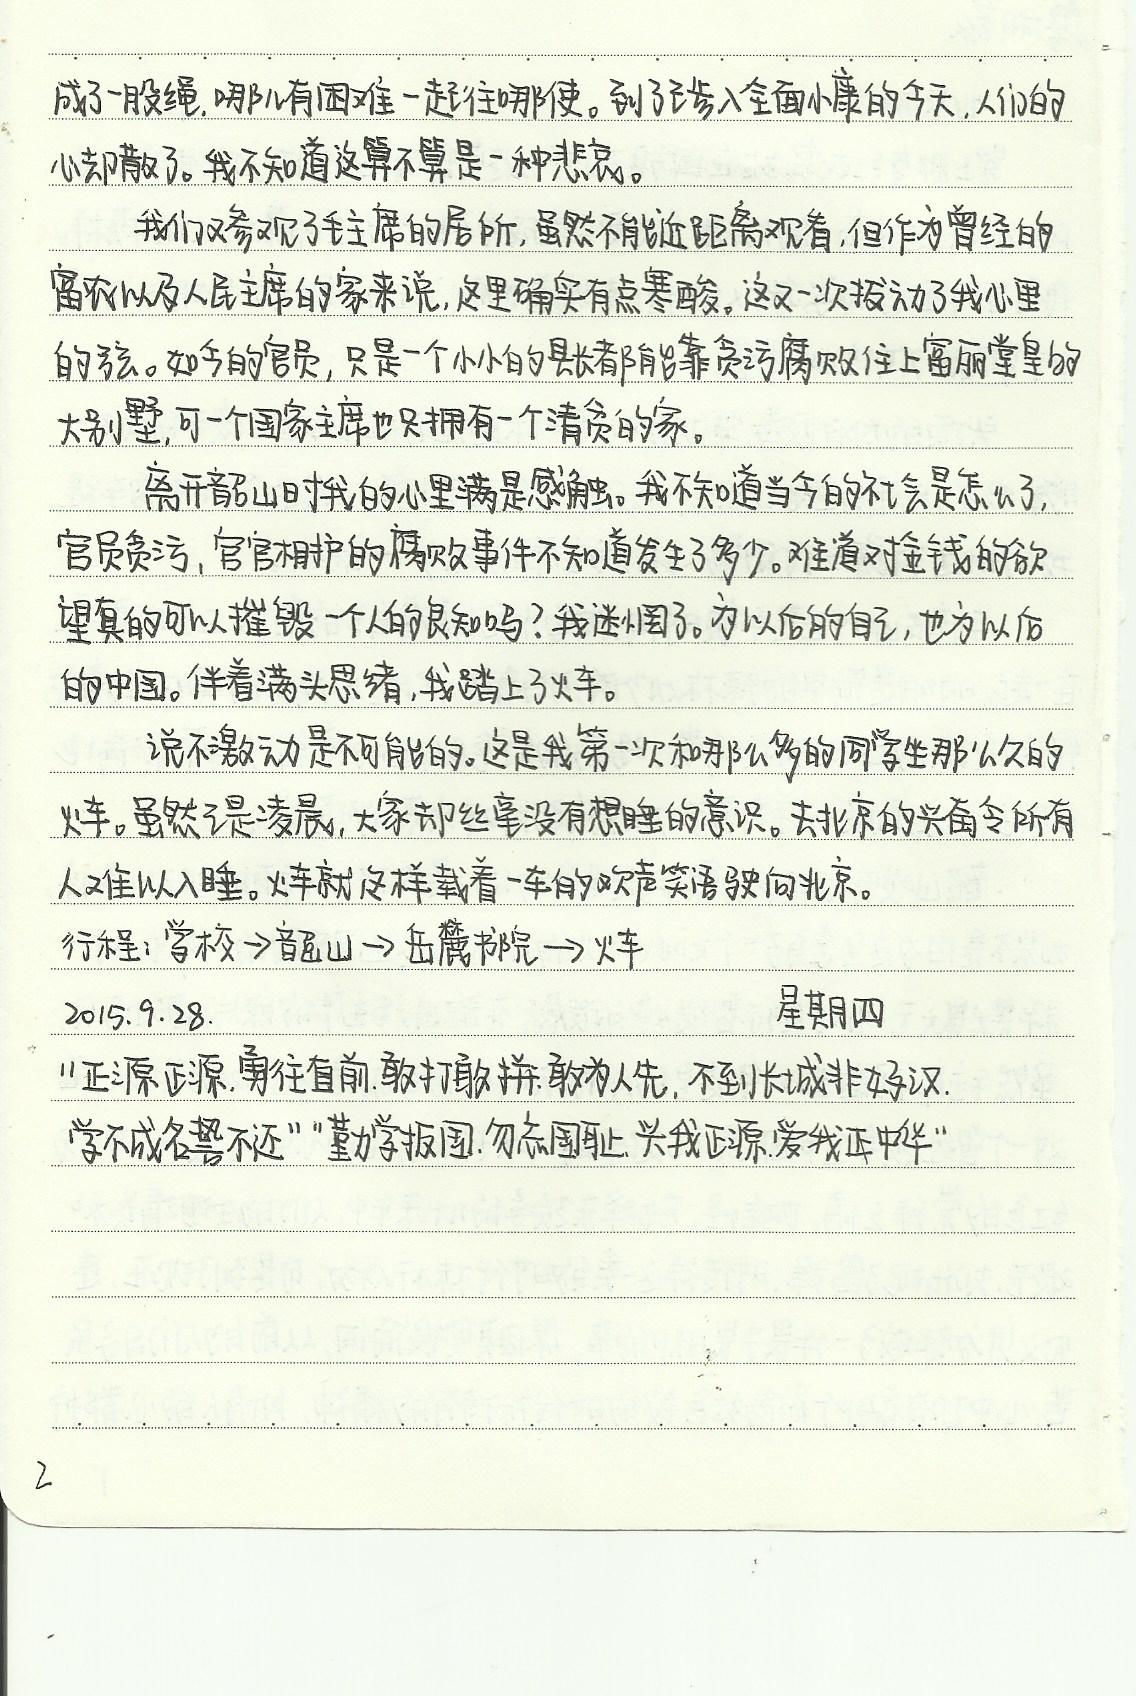 成了一股绳，哪儿有困难一起往哪使。到了已步入全面小康的今天，人们的
心却散了。我不知道这算不算是一种悲哀。
我们又参观了毛主席的居所，虽然不能近距离观看，但作为曾经的
富农以及人民主席的家来说，这里确实有点寒酸。这又一次拨动了我心里
的弦。如今的官员，只是一个小小的县长都能靠贪污腐败住上富丽堂皇的
大别墅，可一个国家主席也只拥有一个清贫的家。
离开韶山时我的心里满是感触。我不知道当今的社会是怎么了，
官员贪污，官官相护的腐败事件不知道发生了多少。难道对金钱的欲
望真的可以摧毁一个人的良知吗？我迷惘了。为以后的自己，也为以后
的中国。伴着满头思绪，我踏上了火车。
说不激动是不可能的。这是我第一次和那么多的同学坐那么久的
火车。虽然已是凌晨，大家却丝毫没有想睡的意识。去北京的兴奋令所有
人难以入睡。火车就这样载着一车的欢声笑语驶向北京。
行程：学校→韶山→岳麓书院→火车
2015.9.28. 星期四
"正源正源.勇往直前.敢打敢拼.敢为人先，不到长城非好汉.
学不成名誓不还""勤学报国.勿忘国耻.兴我正源.爱我中华"
2